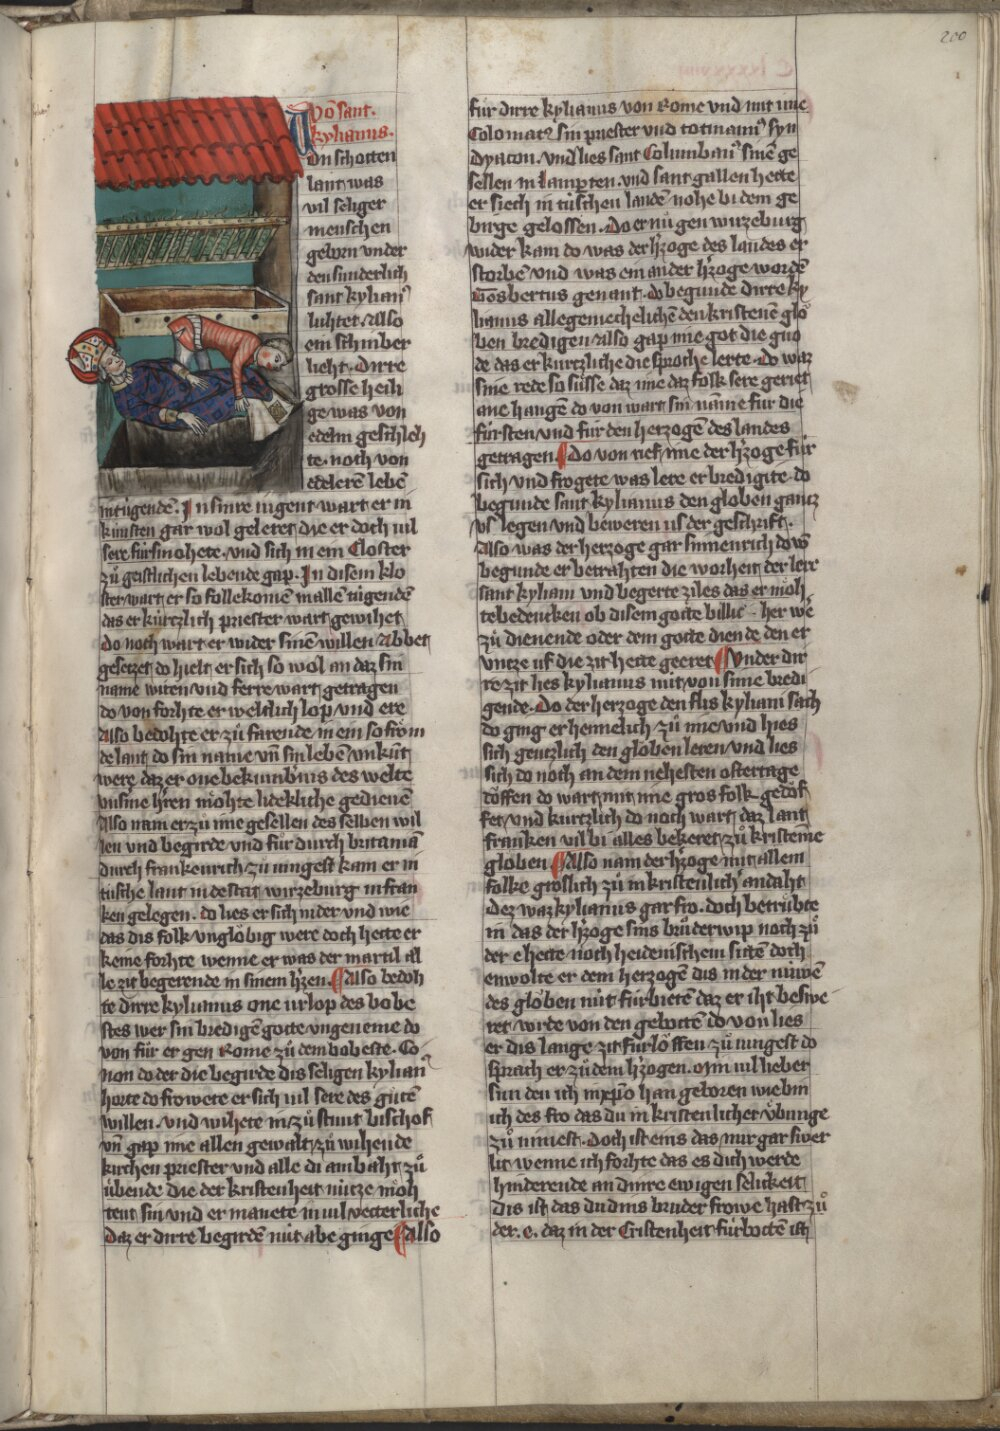 200
Võ sant.
kylianus.
Von schotten
lant was
vil seliger
menschen
geborn vnder
den sunderlich
sant kylian9
luhtet. Also
ein schinber
lieht. Dirre
grosse heili
ge was von
edelm geschleh
te. noch von
edelerē lebē
in tùgendē. In sinre iugent wart er in
kùnsten gar wol geleret die er doch vil
sere fùrsmohete. vnd sich in ein Closter
zů geistlichen lebende gap. In disem klo
ster wart er so follekomē in allē tùgendē
das er kùrtzlich priester wart gewihet
Do noch wart er wider sinē willen Abbet
gesetzet do hielt er sich so wol an daz sin
name witen vnd ferre wart getragen
do von forhte er weltlich lop vnd ere
Also bedohte er zů farende in ein so fröm
de lant do sin name vñ sin lebē vnkùnt
were daz er one bekumbʼnis des welte
vnsme hʼren möhte lideklichē gedienē
Also nam er zů ime gesellen des selben wil
len vnd begirde vnd fůr durch britaniā
durch frankenrich zů iungest kam er in
tùsche lant in de stat wirzeburg in fran
ken gelegen. do lies er sich nider vnd wie
das dis folk vnglöbig were doch hette er
keine forhte wenne er was der martil al
le zit begerende in sinem hʼzen. Also bedoh
te dirre kylianus one vrlop des bobe
stes wer sin bredigē gotte vngeneme do
von fůr er gen Rome zů dem bobeste. Co
non do der die begirde dis seligen kylian9
horte do frowete er sich vil sere des gůtē
willen. vnd wihete in zů stunt bischof
vñ gap ime allen gewalt zů wihende
kirchen priester vnd alle di ambaht zů
ùbende die der kristenheit nùtze möh
tent sin vnd er manete in vil vetterliche
daz er dirre begirdē nùt abe ginge Also
fůr dirre kylianus von Rome vnd mit ime
Colomat9 sin priester vnd totmann9 syn
dyacon. vnd lies sant Columban9 sinē ge
sellen in lamparten. vnd sant gallen hette
er siech in tùschen landē nohe bi dem ge
birge gelossen. Do er nů gen wirzeburg
wider kam do was der hʼzoge des landes er
storbē vnd was ein ander hʼzoge wordē
Gosbertus genant. do begunde dirre ky
lianus allegemechelichē den kristenē glö
ben bredigen also gap ime got die gno
de das er kurtzliche die sproche lerte. do waz
sine rede so sùsse daz ime daz folk sere geriet
ane hangē do von wart sin nāme fùr die
fùrsten vnd fùr den herzogē des landes
getragen. Do von rief ime der hʼzoge fùr
sich vnd frogete was lere er bredigite. do
begunde sant kylianus den globen gantz
vs legen vnd beweren us der geschrift.
Also was der herzoge gar sinnenrich do vō
begunde er betrahten die worheit der lere
sant kyliani vnd begerte ziles das er möh
te bedencken ob disem gotte billic her wē
zů dienende oder dem gotte diende den er
vntze uf die zit hette geeret Vnder dir
re zit lies kylianus nùt von sime bredi
gende. Do der herzoge den flis kyliani sach
do ging er heimelich zů ime vnd hies
sich gentzlich den globen leren vnd lies
sich do noch an dem nehesten ostertage
töffen do wart mit ime gros folk getöf
fet vnd kurtzlich do noch wart daz lant
franken vil bi alles bekeret zů kristeme
globen. Also nam der hʼzoge mit allem
folke groslich zů in kristenlichʼ andaht
dez waz kylianus gar fro. doch betrùbte
in das der hʼzoge sins brůder wip noch zů
der e hette noch heidenischem sittē doch
enwolte er dem herzogē dis in der nùwē
des globen nùt fùrbietē daz er iht beswe
ret wrde von den gebottē do von lies
er dis lange zit fùrlöffen zů iungest do
sprach er zů dem hʼzogen. Min vil lieber
sun den ich in xp̄o han geboren wie bin
ich des fro das du in kristenlicher ùbunge
zů nimest. Doch ist eins das mir gar swer
lit wenne ich forhte das es dich werde
hinderende an dinre ewigen selickeit
Dis ist das du dins brůder frowe hast zů
der. e. daz in der Cristenheit fùrbotten ist